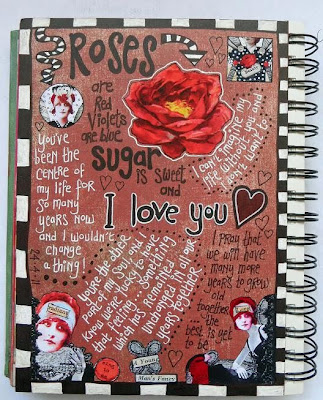 Roses
are
Red
Violets
are blue
sugar
is sweet
and
I love you
I can't imagine my
life without you and
I don't want to
You've
been the
centre of
my life for
so many
years now
and I wouldn't
change
a thing!
24.4.11
You're the other
part of my soul and I
know we're lucky to have
that feeling... something
which has remained
undamaged in all our
years together
I pray that
we will have
many more
years to grow
old
together
the
best is yet
to be
A Young
Man's Fancy